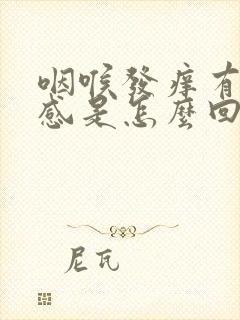 咽喉發癢有
感是怎麼回
尼瓦